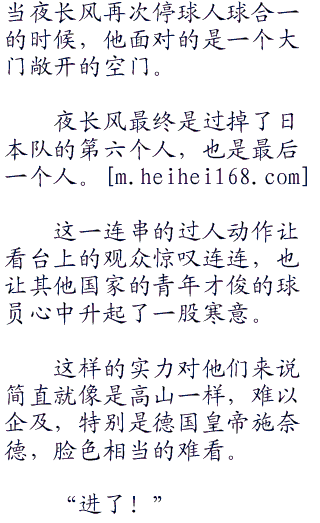 当夜长风再次停球人球合一
的时候，他面对的是一个大
门敞开的空门。
夜长风最终是过掉了日
本队的第六个人，也是最后
一个人。[m.heihei168.com]
这一连串的过人动作让
看台上的观众惊叹连连，也
让其他国家的青年才俊的球
员心中升起了一股寒意。
这样的实力对他们来说
简直就像是高山一样，难以
企及，特别是德国皇帝施奈
德，脸色相当的难看。
“进了！”